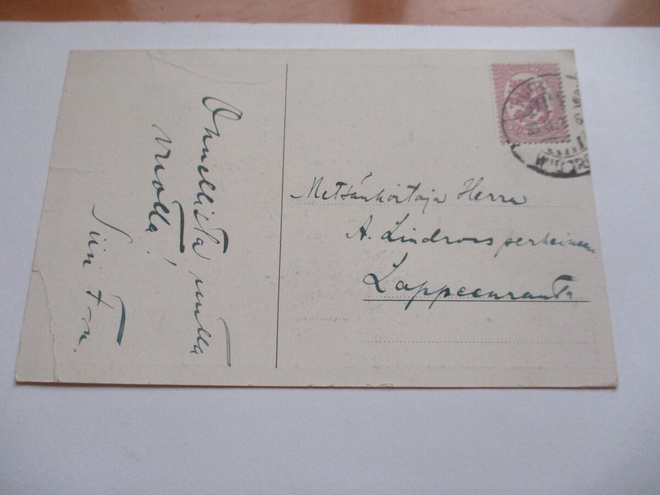 Onnellista uutta
vuotta!
Metsänhoitaja Herra
A. Lindroos perheineen
Lappeenranta